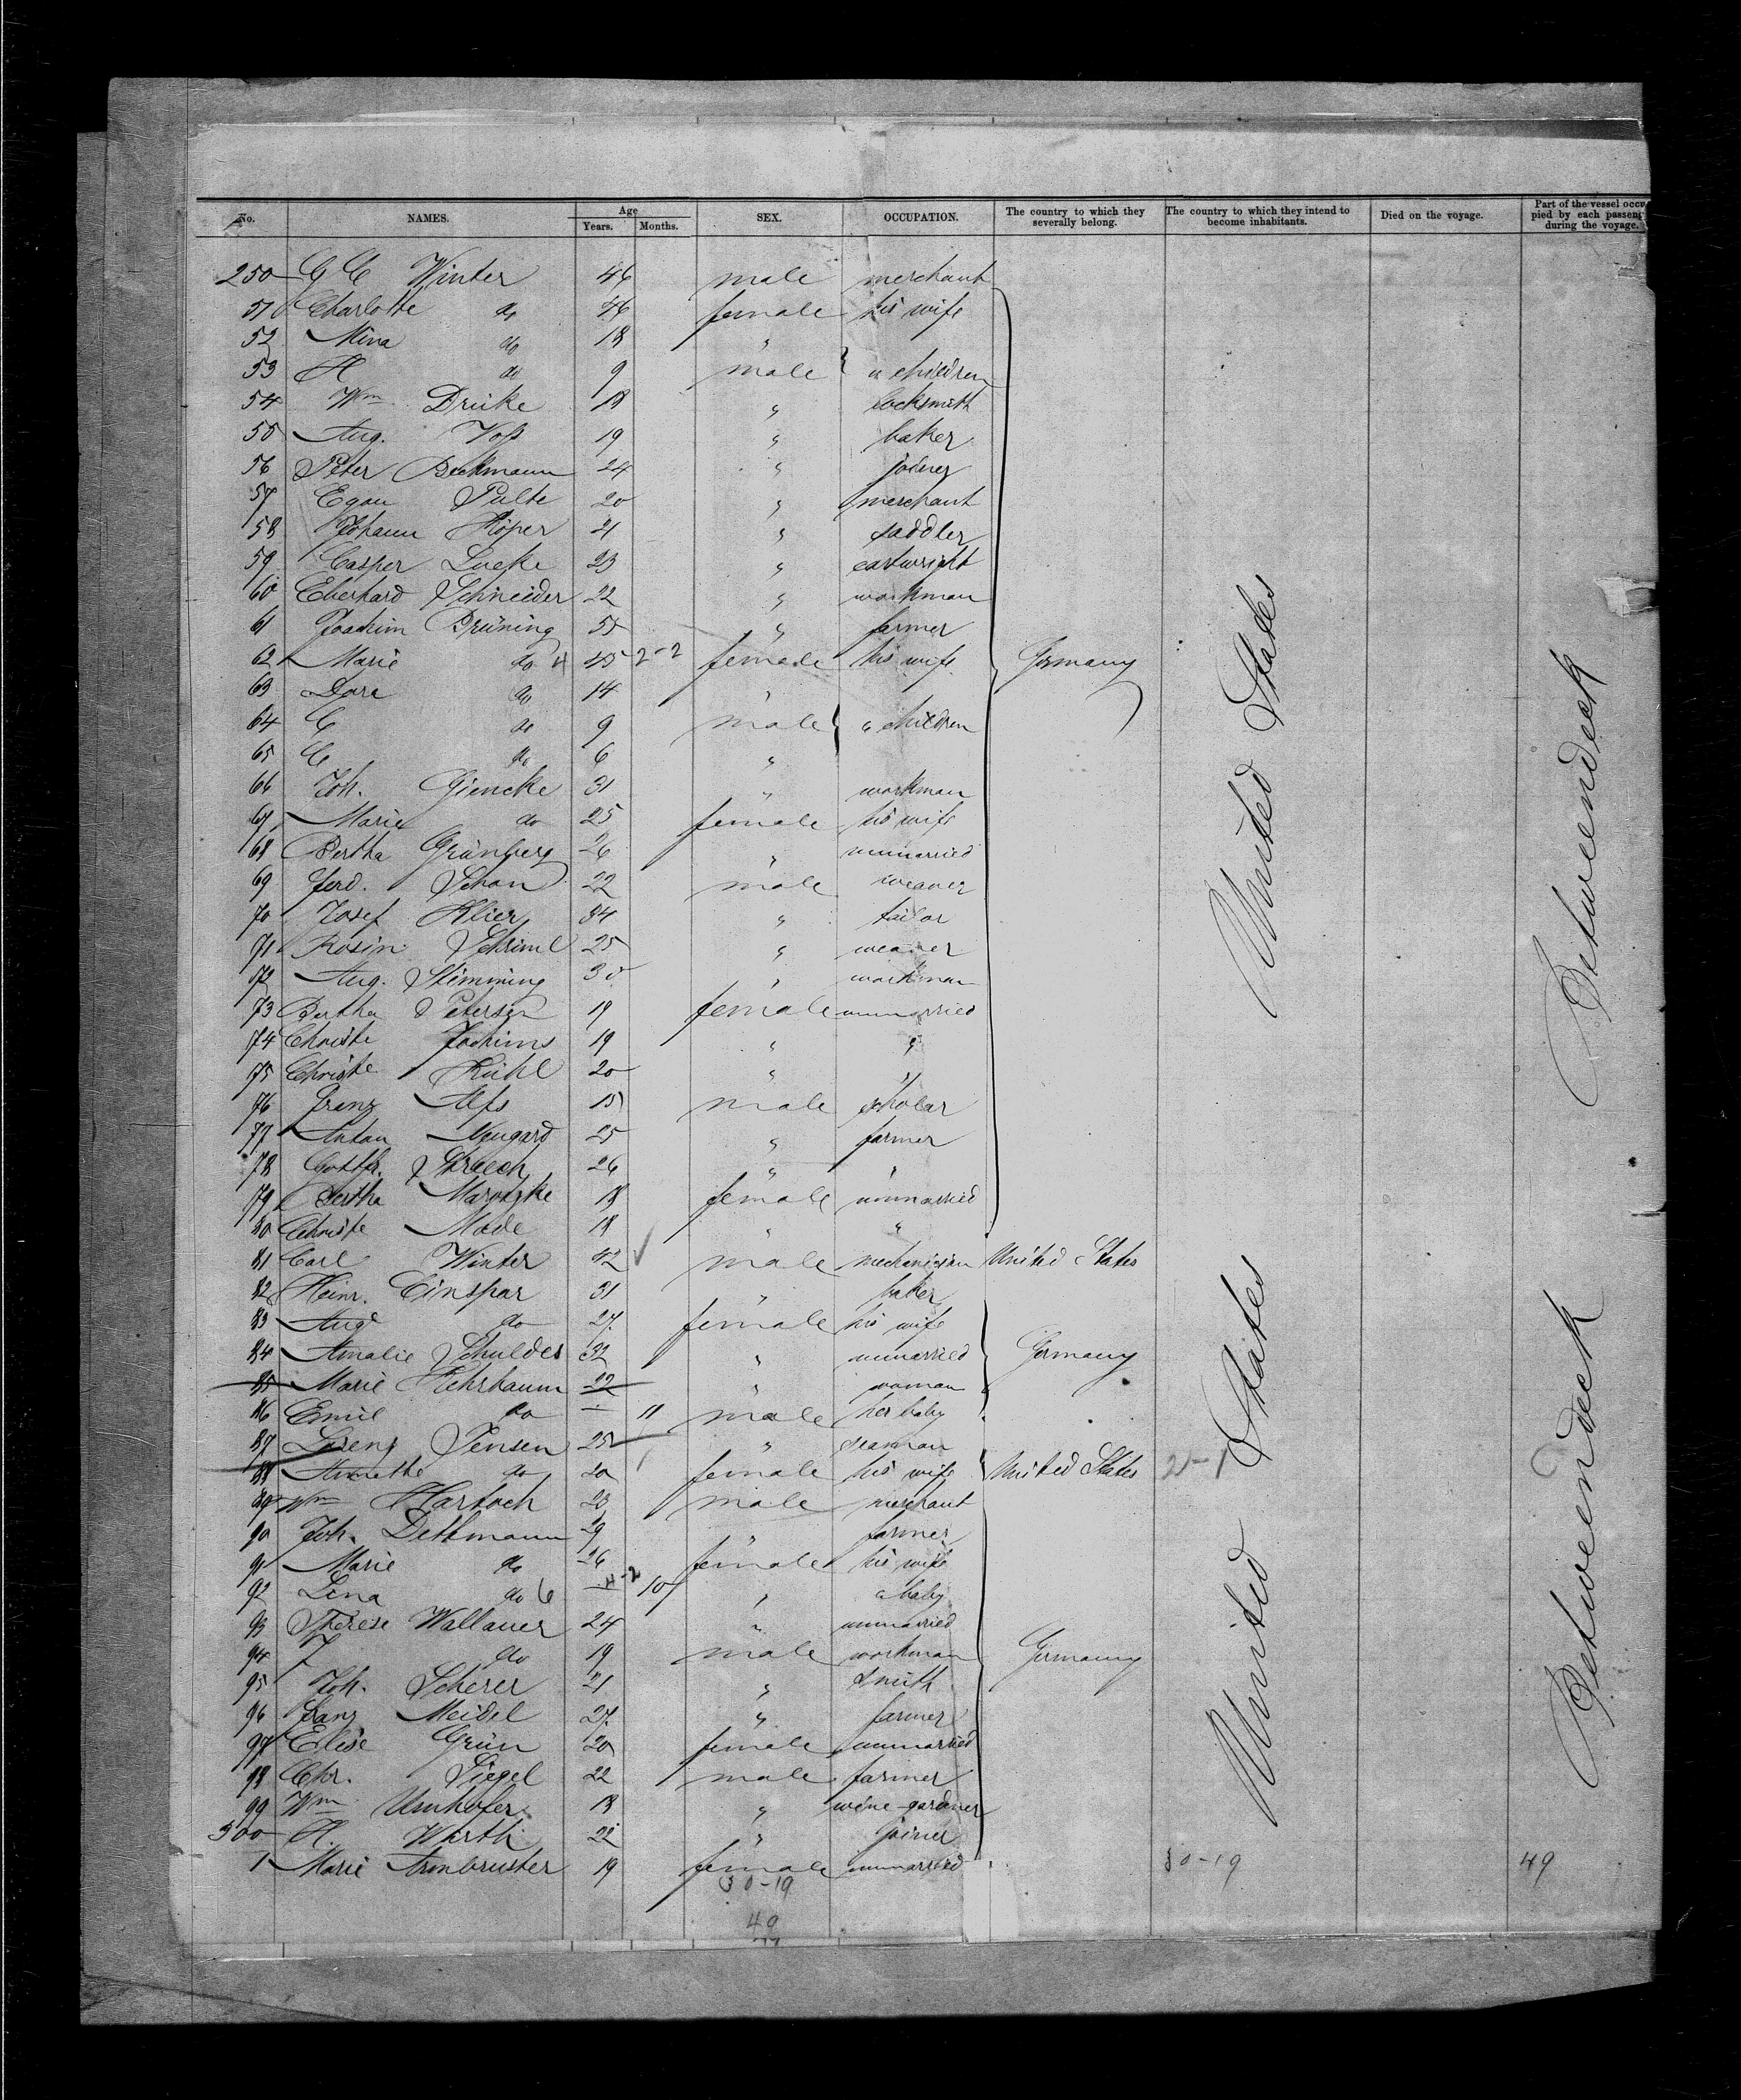 No. NAMES. Age Years. Months. SEX. OCCUPATION. The country to which they severally belong. The country to which they intend to become inhabitants. Died on the voyage. Part of the vessel occupied by each passenger during the voyage.
250 G C Winter 46 male merchant
51 Charlotte do 46 female his wife
52 Mina do 18 "
53 H do 9 male " children
54 Wm Drüke 18 " locksmith
55 Aug. Voß 19 " baker
56 Peter Beckmann 24 " joiner
57 Egon Pulte 20 " merchant
58 Johann Höper 21 " saddler
59 Casper Lueke 23 " cartwright
60 Eberhard Schneider 22 " workman
61 Joachim Brüning 55 " farmer
62 Marie do 4 45 2-2 female his wife Germany
63 Dora do 14 "
64 C do 9 male " children
65 C do 6 "
66 Joh. Giencke 31 " workman
67 Marie do 25 female his wife
68 Bertha Grünberg 26 " unmarried
69 Ferd. Schon 22 male weaver
70 Josef Klier 34 " tailor
71 Rosin Schriml 25 " weaver
72 Aug. Stimming 30 " workman
73 Bertha Petersen 19 female unmarried
74 Christe Jochims 19 " "
75 Christe Kühl 20 " "
76 Franz Alfs 15 male scholar
77 Anton Neugard 25 " farmer
78 Gottfr. 26 " "
79 Bertha 18 female unmarried
80 Christe Made 18 " "
81 Carl Winter 42 male mechanician United States
82 Heinr. Einspar 31 " baker
83 Auge do 27 female his wife
84 Amalie Schuldes 32 " unmarried Germany
85 Marie Kehrbaum 22 " woman
86 Emil do - 11 male her baby
87 Lorenz Jensen 25 " seaman
88 Annethe do 20 female his wife United States 21-1
89 Wm Hartoch 23 male merchant
90 Joh. Dethmann 29 " farmer
91 Marie do 26 female his wife
92 Lena do 6 - 10 " a baby
93 Therese Wallauer 24 " unmarried
94 J do 19 male workman Germany
95 Joh. Scherer 21 " smith
96 Franz Meidel 27 " farmer
97 Elise Grün 20 female unmarried
98 Chr. Siegel 22 male farmer
99 Wm Umhofer 18 " wine-gardner
300 H. Warth 22 " joiner
1 Marie Armbruster 19 female unmarried 30-19 49
30-19
49
United States
Betweendeck
United States
Betweendeck